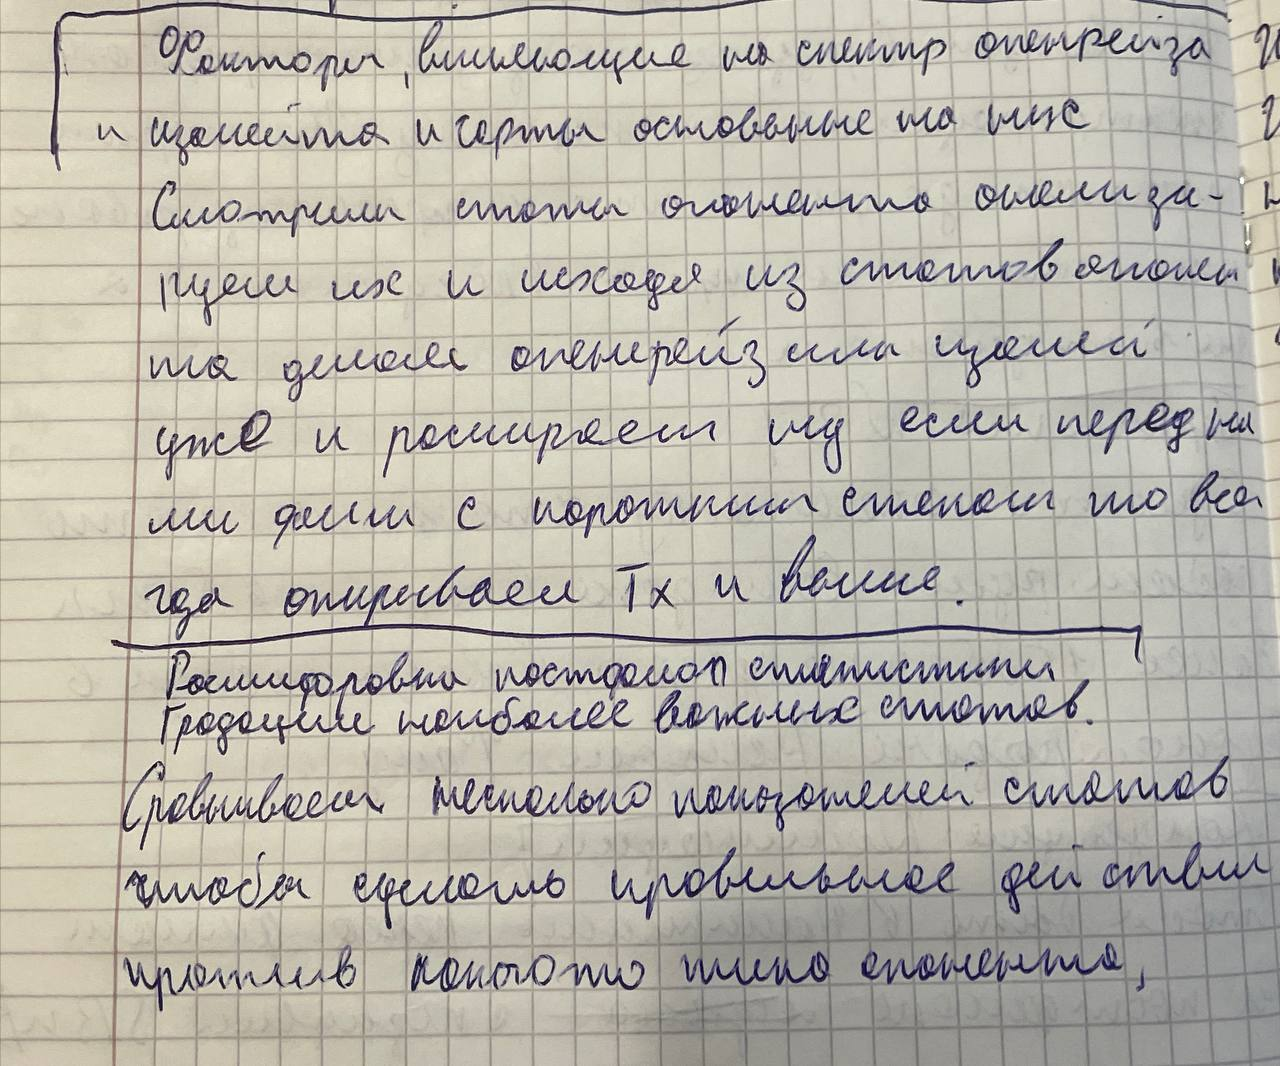 Факторы, влияющие на спектр опенрейза
и изолейта и чарты основные на них
Смотрим статы опонента онализи-
руем их и исходя из статов опонен
та делаем опенрейз или изолей
уже и росширяем ну если перед на
ми фиш с коротким стеком то все
гда открываем Tx и выше.
Росшифровка постфлоп статистики
Градации наиболее важных статов.
Сровниваем несколько показотелей статов
чтобы сделать провильное действи
против какогото типа опонента,